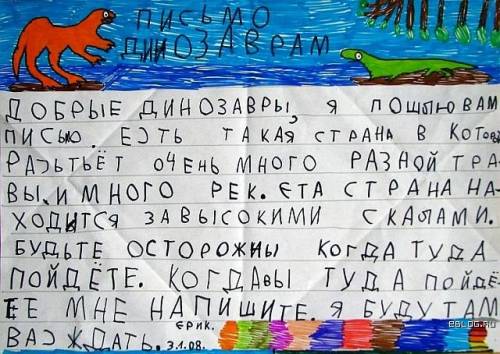 ПИСЬМО
ДИНОЗАВРАМ
ДОБРЫЕ ДИНОЗАВРЫ, Я ПОШЛЮ ВАМ
ПИСЬЮ. ЕСТЬ ТАКАЯ СТРАНА В КОТОВЫ
РАЗТЬЁТ ОЧЕНЬ МНОГО РАЗНОЙ ТРА
ВЫ. И МНОГО РЕК. ЕТА СТРАНА НА-
ХОДИТСЯ ЗА ВЫСОКИМИ СКАЛАМИ.
БУДЬТЕ ОСТОРОЖНЫ КОГДА ТУДА
ПОЙДЁТЕ. КОГДА ВЫ ТУДА ПОЙДЕ-
ЕЕ МНЕ НАПИШИТЕ. Я БУДУ ТАМ
ВАС ЖДАТЬ.
ЕРИК.
3.1.08.
EBLOG.RU